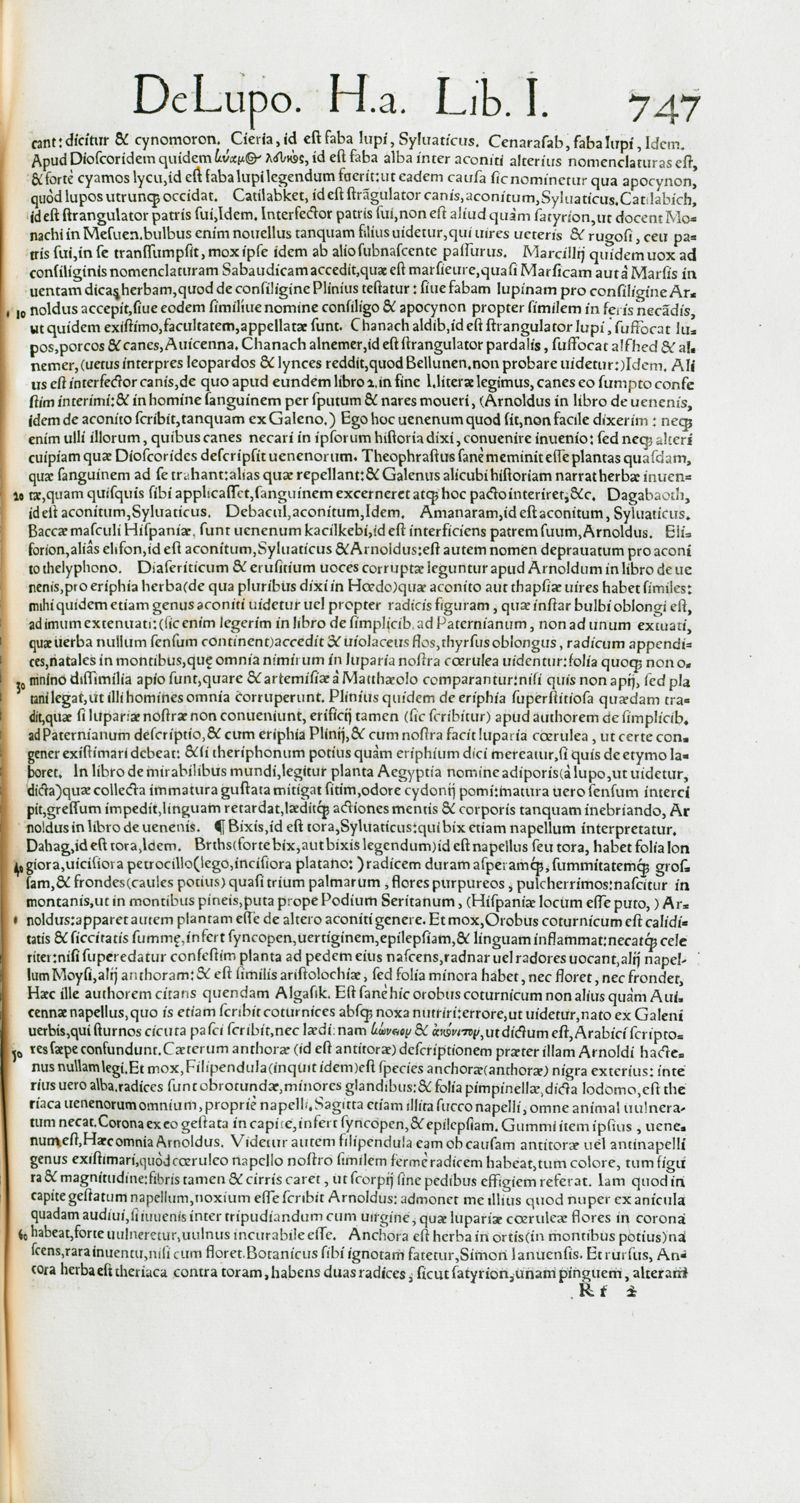 DeLupo. H.a. Lib. I. 747
cant: dicitur & cynomoron. Cieria, id eſt faba lupi, Syluaticus. Cenaraſab, faba lupi, Idem.
Apud Dioſcoridem quidem κύαμ⊕ λευκὸς, id eſt faba alba inter aconiti alterius nomenclaturas eſt,
& fortè cyamos lycu, id eſt faba lupi legendum fuerit: ut eadem cauſa ſic nominetur qua apocynon,
quòd lupos utrunq; occidat. Catilabket, id eſt ſtrãgulator canis, aconitum, Syluaticus. Catilabich,
id eſt ſtrangulator patris ſui, Idem. Interfector patris ſui, non eſt aliud quàm ſatyrion, ut docent Mo-
nachi in Meſuen. bulbus enim nouellus tanquam filius uidetur, qui uires ueteris & rugoſi, ceu pa-
tris ſui, in ſe tranſſumpſit, mox ipſe idem ab alio ſubnaſcente paſſurus. Marcillij quidem uox ad
conſiliginis nomenclaturam Sabaudicam accedit, quæ eſt marſieure, quaſi Marſicam aut à Marſis in
uentam dicas herbam, quod de conſiligine Plinius teſtatur: ſiue fabam lupinam pro conſiligine Ar-
10 noldus accepit, ſiue eodem ſimiliue nomine conſiligo & apocynon propter ſimilem in feris necãdis,
ut quidem exiſtimo, facultatem, appellatæ ſunt. Chanach aldib, id eſt ſtrangulator lupi, ſuffocat lu-
pos, porcos & canes, Auicenna. Chanach alnemer, id eſt ſtrangulator pardalis, ſuffocat alfhed & al-
nemer, (uetus interpres leopardos & lynces reddit, quod Bellunen. non probare uidetur:) Idem. Ali
us eſt interfector canis, de quo apud eundem libro 2. in fine l. literæ legimus, canes eo ſumpto confe
ſtim interimi: & in homine ſanguinem per ſputum & nares moueri, (Arnoldus in libro de uenenis,
idem de aconito ſcribit, tanquam ex Galeno.) Ego hoc uenenum quod ſit, non facile dixerim: neq;
enim ulli illorum, quibus canes necari in ipſorum hiſtoria dixi, conuenire inuenio: ſed neq; alteri
cuipiam quæ Dioſcorides deſcripſit uenenorum. Theophraſtus ſanè meminit eſſe plantas quaſdam,
quæ ſanguinem ad ſe trahant: alias quæ repellant: & Galenus alicubi hiſtoriam narrat herbæ inuen-
20 tæ, quam quiſquis ſibi applicaſſet, ſanguinem excerneret atq; hoc pacto interiret, &c. Dagabaoth,
id eſt aconitum, Syluaticus. Debacul, aconitum, Idem. Amanaram, id eſt aconitum, Syluaticus.
Baccæ maſculi Hiſpaniæ, ſunt uenenum kacilkebi, id eſt interficiens patrem ſuum, Arnoldus. Eli-
forion, aliâs eliſon, id eſt aconitum, Syluaticus & Arnoldus: eſt autem nomen deprauatum pro aconi
to thelyphono. Diaferiticum & erufitium uoces corruptæ leguntur apud Arnoldum in libro de ue
nenis, pro eriphia herba (de qua pluribus dixi in Hœdo) quæ aconito aut thapſiæ uires habet ſimiles:
mihi quidem etiam genus aconiti uidetur uel propter radicis figuram, quæ inſtar bulbi oblongi eſt,
ad imum extenuati: (ſic enim legerim in libro de ſimplicib. ad Paternianum, non ad unum extuati,
quæ uerba nullum ſenſum continent) accedit & uiolaceus flos, thyrſus oblongus, radicum appendi-
ces, natales in montibus, quę omnia nimirum in luparia noſtra cœrulea uidentur: folia quoq; non o-
30 mnino diſſimilia apio ſunt, quare & artemiſiæ à Matthæolo comparantur: niſi quis non apij, ſed pla
tani legat, ut illi homines omnia corruperunt. Plinius quidem de eriphia ſuperſtitioſa quædam tra-
dit, quæ ſi lupariæ noſtræ non conueniunt, erificij tamen (ſic ſcribitur) apud authorem de ſimplicib.
ad Paternianum deſcriptio, & cum eriphia Plinij, & cum noſtra facit luparia cœrulea, ut certe con-
gener exiſtimari debeat: & ſi theriphonum potius quàm eriphium dici mereatur, ſi quis de etymo la-
boret. In libro de mirabilibus mundi, legitur planta Aegyptia nomine adiporis (à lupo, ut uidetur,
dicta) quæ collecta immatura guſtata mitigat ſitim, odore cydonij pomi: matura uero ſenſum interci
pit, greſſum impedit, linguam retardat, læditq; actiones mentis & corporis tanquam inebriando, Ar
noldus in libro de uenenis. ¶ Bixis, id eſt tora, Syluaticus: qui bix etiam napellum interpretatur.
Dahag, id eſt tora, Idem. Brths (forte bix, aut bixis legendum) id eſt napellus ſeu tora, habet folia lon
40 giora, uiciſiora petrocillo (lego, inciſiora platano:) radicem duram aſperamq;, ſummitatemq; groſ-
ſam, & frondes (caules potius) quaſi trium palmarum, flores purpureos, pulcherrimos: naſcitur in
montanis, ut in montibus pineis, puta prope Podium Seritanum, (Hiſpaniæ locum eſſe puto,) Ar-
noldus: apparet autem plantam eſſe de altero aconiti genere. Et mox, Orobus coturnicum eſt calidi-
tatis & ſiccitatis ſummę, infert ſyncopen, uertiginem, epilepſiam, & linguam inflammat: necatq; cele
riter: niſi ſuperedatur confeſtim planta ad pedem eius naſcens, radnar uel radores uocant, alij napel-
lum Moyſi, alij anthoram: & eſt ſimilis ariſtolochiæ, ſed folia minora habet, nec floret, nec frondet,
Hæc ille authorem citans quendam Algafik. Eſt ſanè hic orobus coturnicum non alius quàm Aui-
cennæ napellus, quo is etiam ſcribit coturnices abſq; noxa nutriri: errore, ut uidetur, nato ex Galeni
uerbis, qui ſturnos cicuta paſci ſcribit, nec lædi: nam κώνειον & ἀκόνιτον, ut dictum eſt, Arabici ſcripto-
50 res ſæpe confundunt. Cæterum anthoræ (id eſt antitoræ) deſcriptionem præter illam Arnoldi hacte-
nus nullam legi. Et mox, Filipendula (inquit idem) eſt ſpecies anchoræ (anthoræ) nigra exterius: inte
rius uero alba. radices ſunt obrotundæ, minores glandibus: & folia pimpinellæ, dicta lodomo, eſt the
riaca uenenorum omnium, propriè napelli. Sagitta etiam illita ſucco napelli, omne animal uulnera-
tum necat. Corona ex eo geſtata in capite, infert ſyncopen, & epilepſiam. Gummi item ipſius, uene-
num eſt, Hæc omnia Arnoldus. Videtur autem filipendula eam ob cauſam antitoræ uel antinapelli
genus exiſtimari, quòd cœruleo napello noſtro ſimilem fermè radicem habeat, tum colore, tum figu
ra & magnitudine: fibris tamen & cirris caret, ut ſcorpij ſine pedibus effigiem referat. Iam quod in
capite geſtatum napellum, noxium eſſe ſcribit Arnoldus: admonet me illius quod nuper ex anicula
quadam audiui, ſi iuuenis inter tripudiandum cum uirgine, quæ lupariæ cœruleæ flores in corona
60 habeat, forte uulneretur, uulnus incurabile eſſe. Anchora eſt herba in ortis (in montibus potius) na
ſcens, rara inuentu, niſi cum floret. Botanicus ſibi ignotam fatetur, Simon Ianuenſis. Et rurſus, An-
cora herba eſt theriaca contra toram, habens duas radices, ſicut ſatyrion, unam pinguem, alteram
R r 2